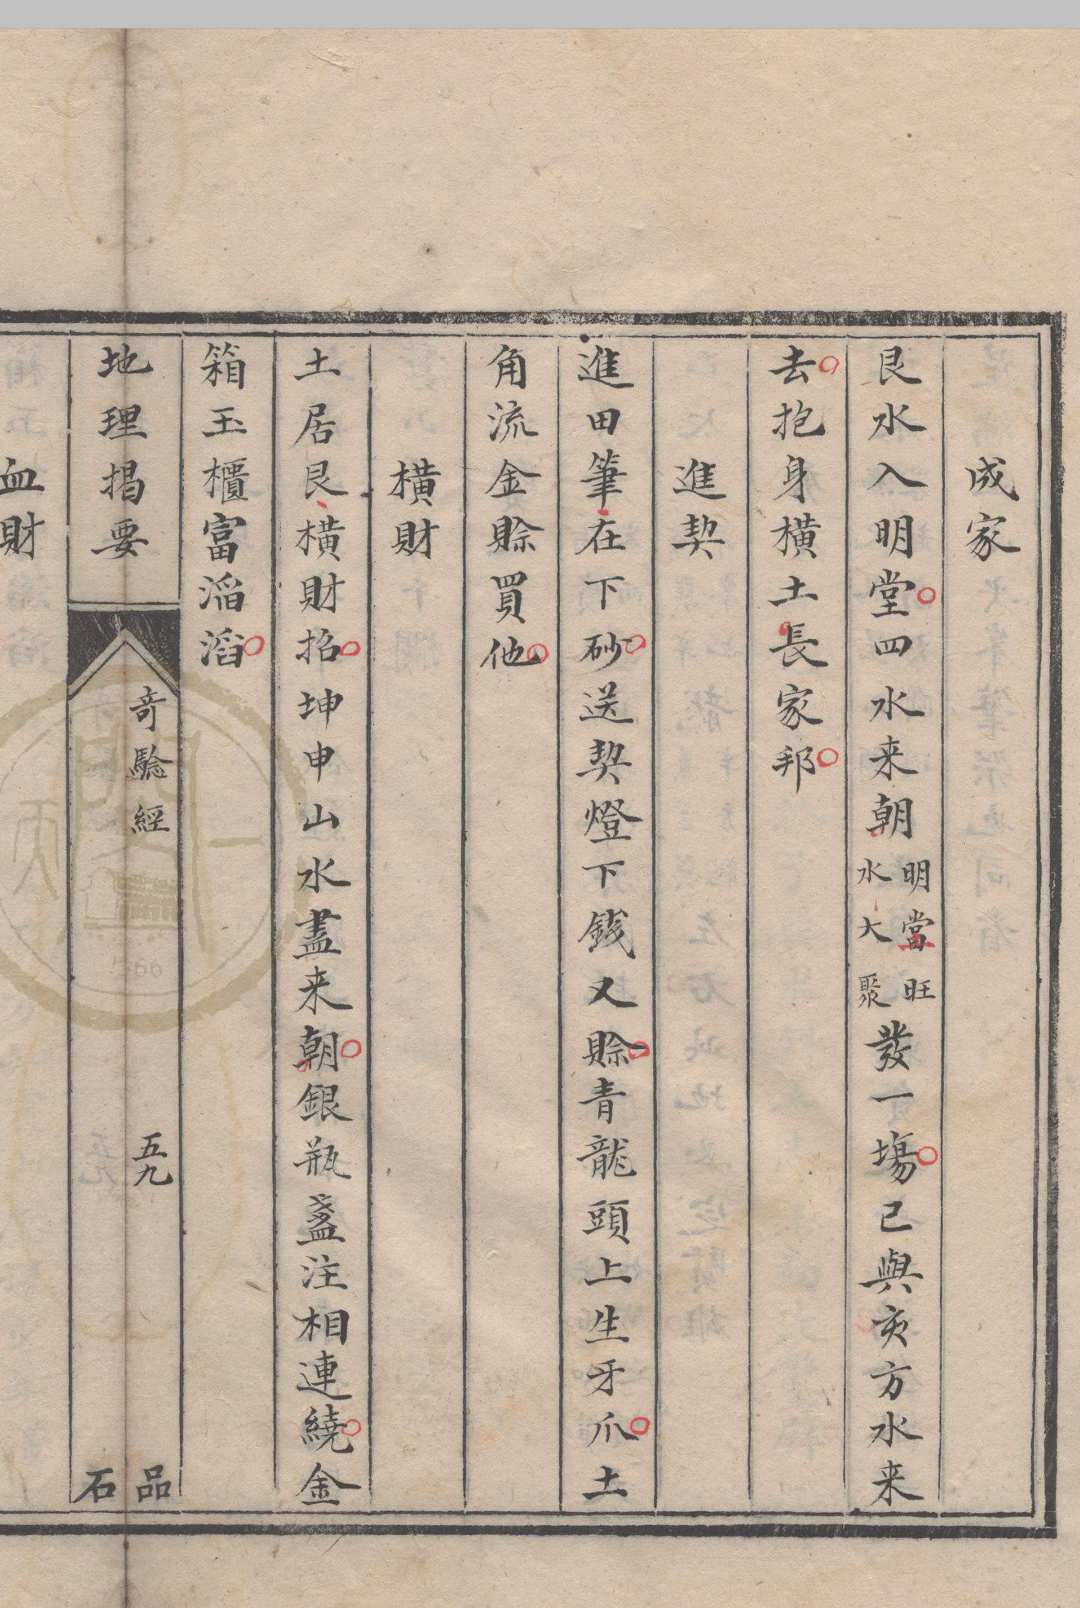 成家
艮水入明堂四水来朝明當旺水大聚發一塲已與亥方水来
去抱身橫土長家邦
進契
進田筆在下砂送契燈下錢又賒青龍頭上生牙爪土
角流金賒買他
橫財
土居艮橫財招坤申山水盡来朝銀瓶盞注相連繞金
箱玉櫃富滔滔
地理揭要
奇驗經
五九
品石
血財